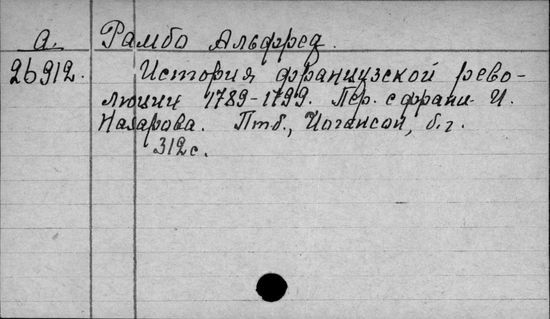 А. Рамбо Альфред.
26912. История французской рево-
люции 1789-1799. Пер. с франц. И.
Назарова. Птб., Иогансон, б.г.
312 с.